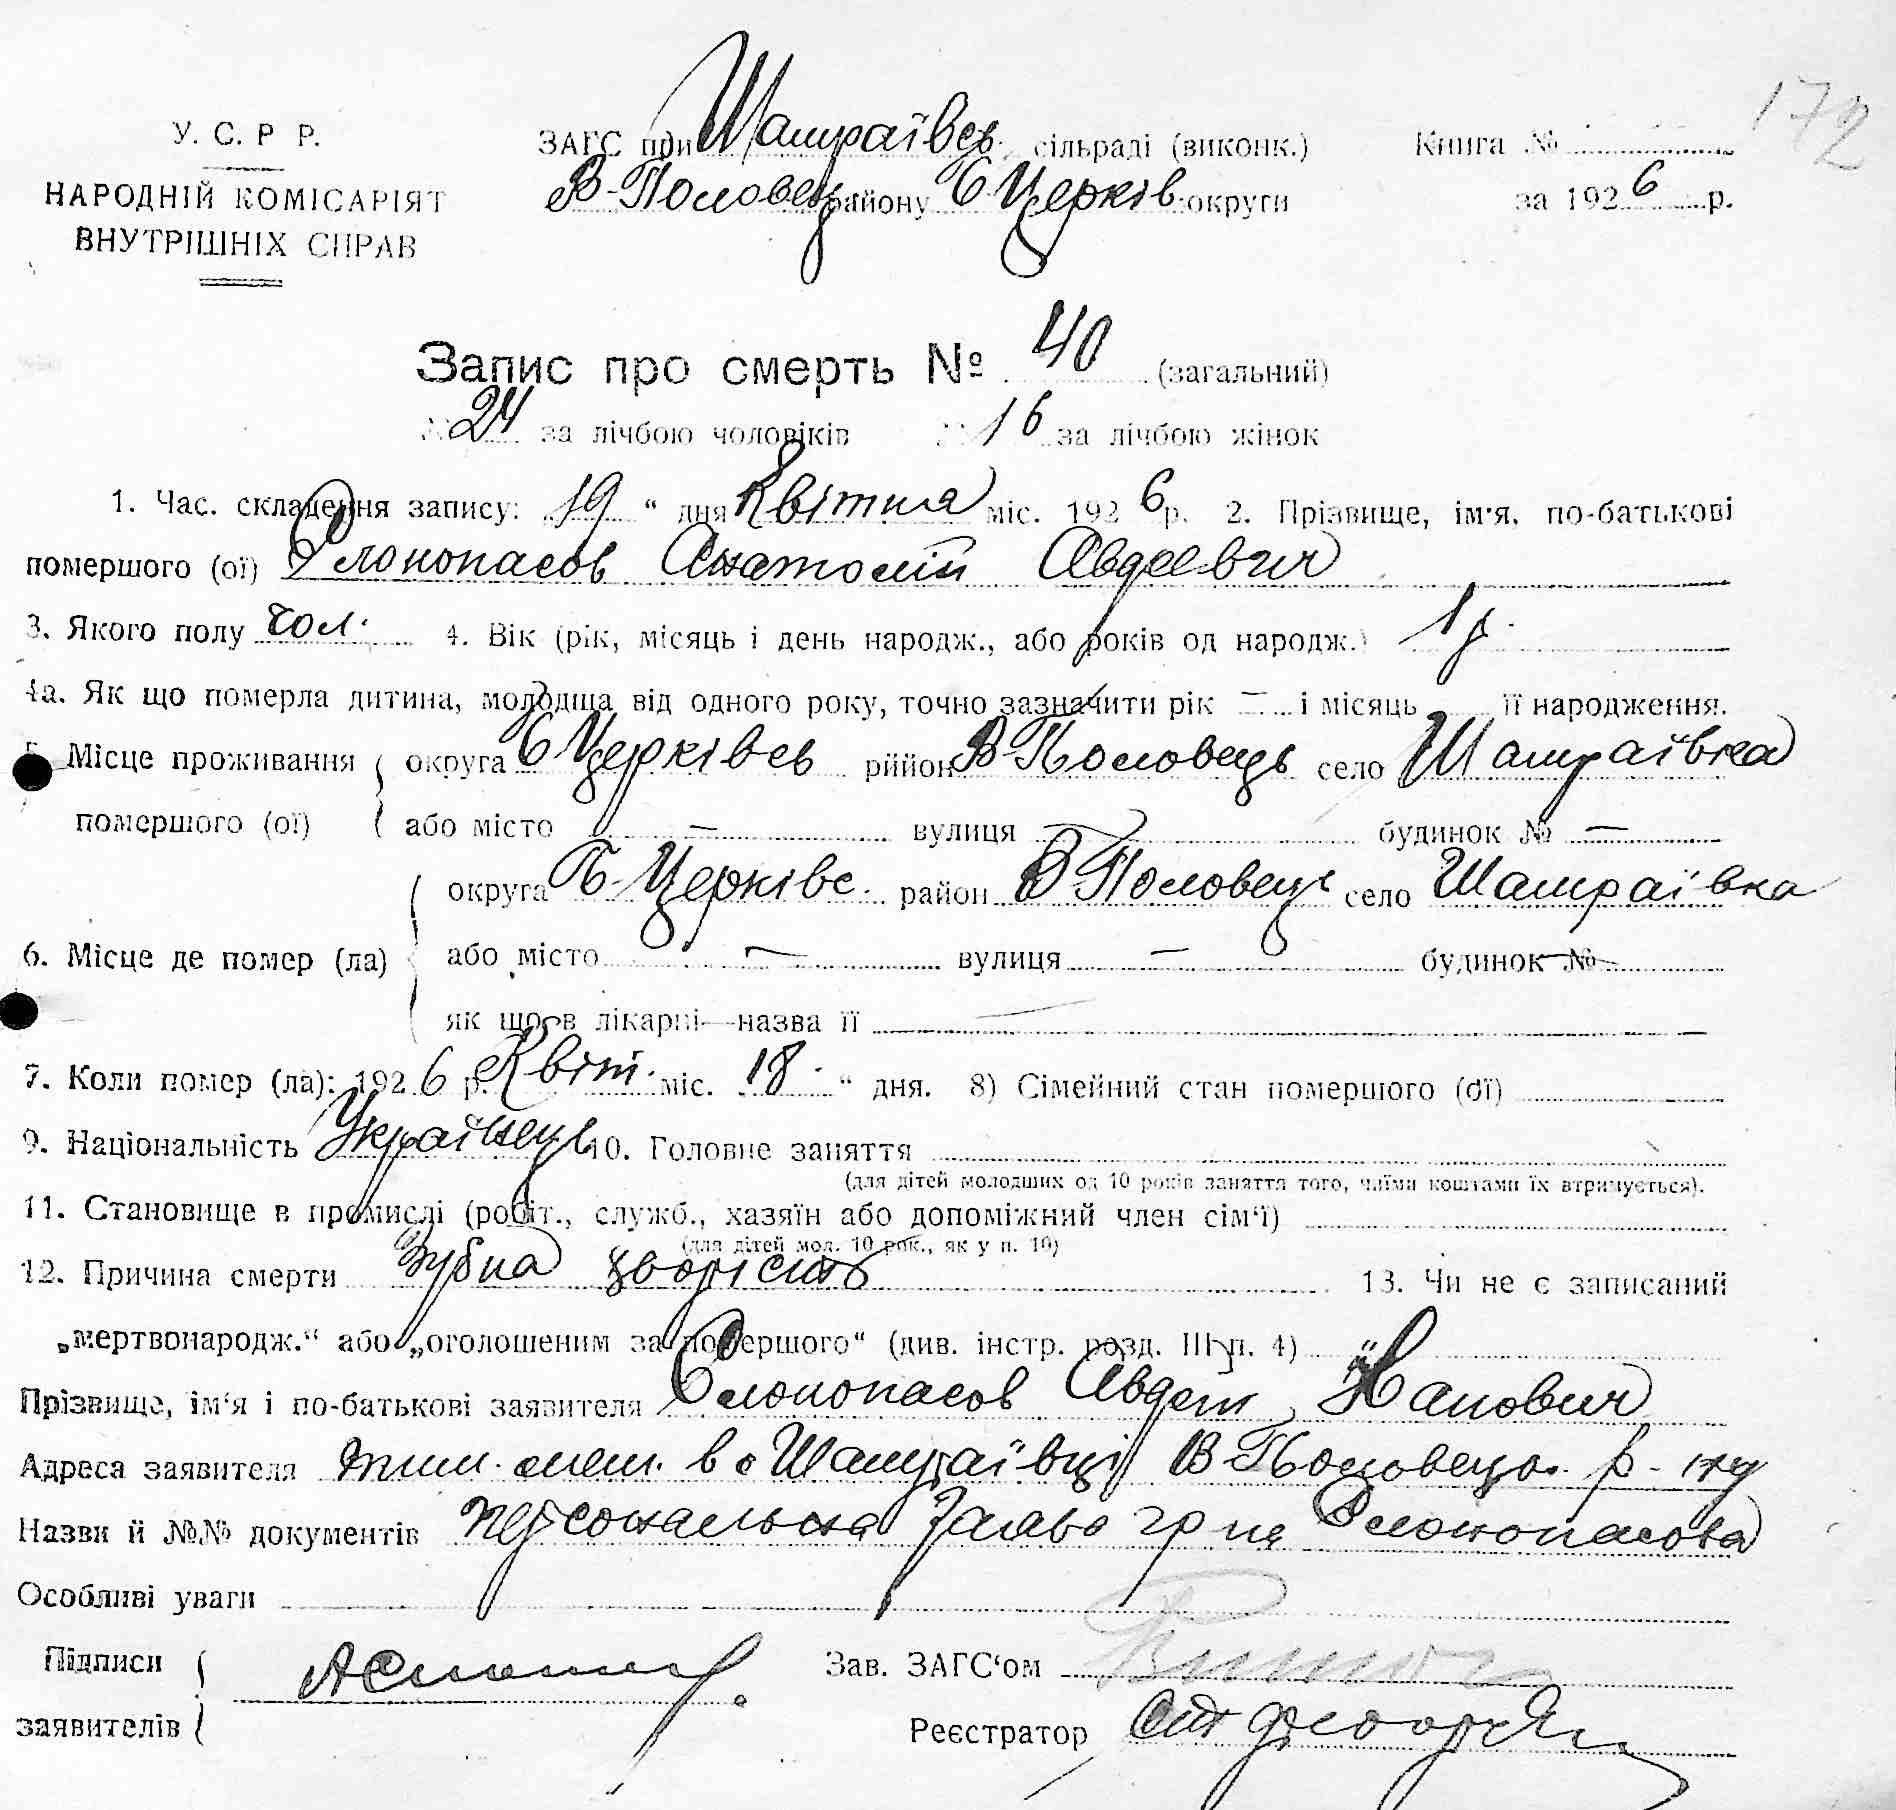 172
У. С. Р Р.
НАРОДНІЙ КОМІСАРІЯТ
ВНУТРІШНІХ СПРАВ
ЗАГС при Шамраївсь. сільраді (виконк.)
В-Половець району Б Церків. округи
Книга №
за 1926 р.
Запис про смерть № 40 (загальний)
№ 24 за лічбою чоловіків № 16 за лічбою жінок
1. Час. складення запису: „19“ дня Квітня міс. 1926 р. 2. Прізвище, ім'я, по-батькові
помершого (ої) Слонопасов Анатолій Авдеевич
3. Якого полу чол. 4. Вік (рік, місяць і день народж., або років од народж.) 1 р.
4а. Як що померла дитина, молодша від одного року, точно зазначити рік — і місяць її народження.
5. Місце проживання округа Б Церківсь район В-Половець село Шамраївка
помершого (ої) або місто — вулиця — будинок № —
округа Б-Церківс. район В Половець село Шамраївка
6. Місце де помер (ла) або місто — вулиця — будинок № —
як що в лікарні—назва її —
7. Коли помер (ла): 1926 р. Квіт. міс. 18 “ дня. 8) Сімейний стан помершого (ої)
9. Національність Українець 10. Головне заняття
(для дітей молодших од 10 років заняття того, чиїми коштами їх втримується).
11. Становище в промислі (робіт., служб., хазяїн або допоміжний член сім'ї)
(для дітей мол. 10 рок., як у п. 10)
12. Причина смерти Зубна 13. Чи не є записаний
„мертвонародж.“ або „оголошеним за помершого“ (див. інстр. розд. III п. 4)
Прізвище, ім'я і по-батькові заявителя Слонопасов Авдей
Адреса заявителя в с Шамраївці В-Половецьк. р-ну
Назви й №№ документів персональна заява гр на Слонопасова
Особливі уваги
Підписи
заявителів
Зав. ЗАГС'ом
Реєстратор